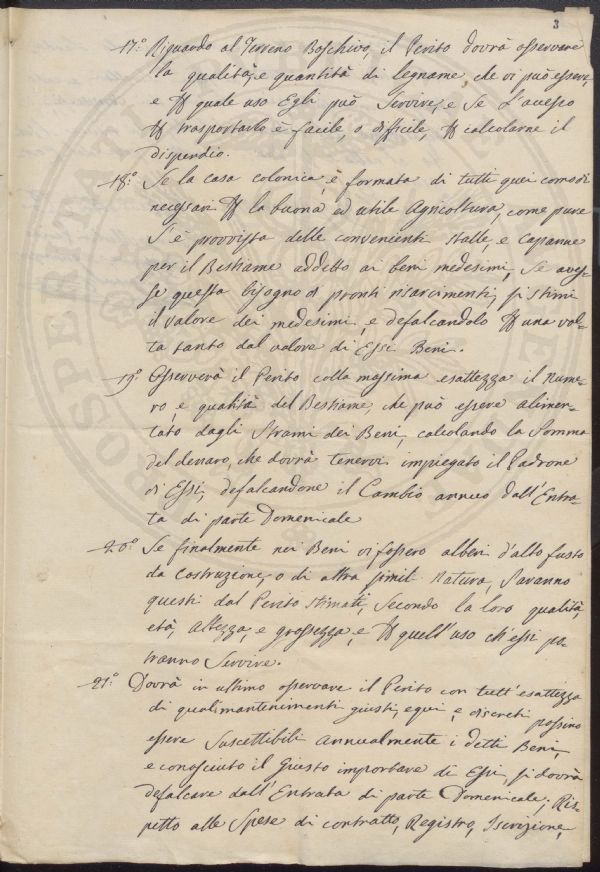 3
17.° Riguardo al Terreno Boschivo, il Perito dovrà osservare
la qualità, e quantità di legname che vi può essere,
e per quale uso Egli può servire, e se l'accesso
per trasportarlo è facile, o difficile, per calcolarne il
dispendio.
18.° Se la casa colonica, è formata di tutti quei comodi
necessari per la buona ed utile Agricoltura, come pure
s'è provvista delle convenienti stalle, e capanne
per il Bestiame addetto ai beni medesimi, se aves-
se questa bisogno di pronti risarcimenti, si stimi
il valore dei medesimi, e defalcandolo per una vol-
ta tanto dal valore di Essi Beni.
19.° Osserverà il Perito colla massima esattezza il Nume-
ro e qualità del Bestiame, che può essere alimen-
tato dagli Strami dei Beni, calcolando la Somma
del denaro, che dovrà tenervi impiegato il Padrone
di Essi, defalcandone il Cambio annuo dall'Entra-
ta di parte Domenicale
20.° Se finalmente nei Beni vi fossero alberi d'alto fusto
da costruzione, o di altra simil natura, saranno
questi dal Perito stimati, secondo la loro qualità,
età, altezza, e grossezza, e per quell'uso ch'essi po-
tranno servire.
21.° Dovrà in ultimo osservare il Perito con tutt'esattezza
di quali mantenimenti giusti, equi, e discreti possino
essere suscettibili annualmente i detti Beni,
e conosciuto il giusto importare di Essi, si dovrà
defalcare dall'Entrata di parte Domenicale; Ris-
petto alle Spese di contratto, Registro, Iscrizione,
PROSPERITATI